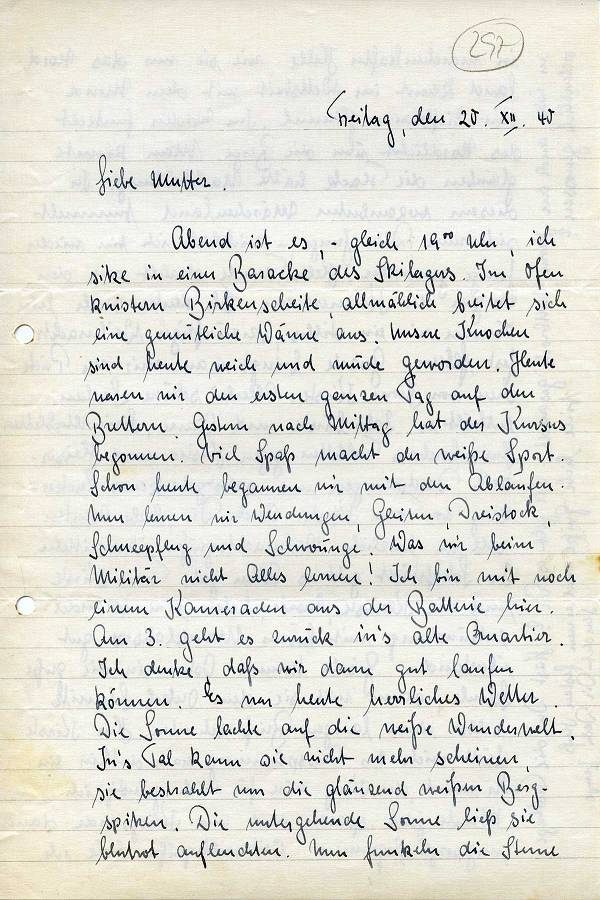 297
Freitag, den 20. XII. 40
Liebe Mutter.
Abend ist es, - gleich 19⁰⁰ Uhr, ich
sitze in einer Baracke des Skilagers. Im Ofen
knistern Birkenscheite, allmählich breitet sich
eine gemütliche Wärme aus. Unsere Knochen
sind heute weich und müde geworden. Heute
waren wir den ersten ganzen Tag auf den
Brettern. Gestern nach Mittag hat der Kursus
begonnen. Viel Spaß macht der weiße Sport.
Schon heute begannen wir mit den Ablaufen.
Nun lernen wir Wendungen, Gleiten, Dreistock,
Schneepflug und Schwünge. Was wir beim
Militär nicht Alles lernen! Ich bin mit noch
einem Kameraden aus der Batterie hier.
Am 3. geht es zurück in's alte Quartier.
Ich denke daß wir dann gut laufen
können. Es war heute herrliches Wetter.
Die Sonne lachte auf die weiße Wunderwelt.
In's Tal kann sie nicht mehr scheinen,
sie bestrahlt nur die glänzend weißen Berg-
spitzen. Die untergehende Sonne ließ sie
blutrot aufleuchten. Nun funkeln die Sterne